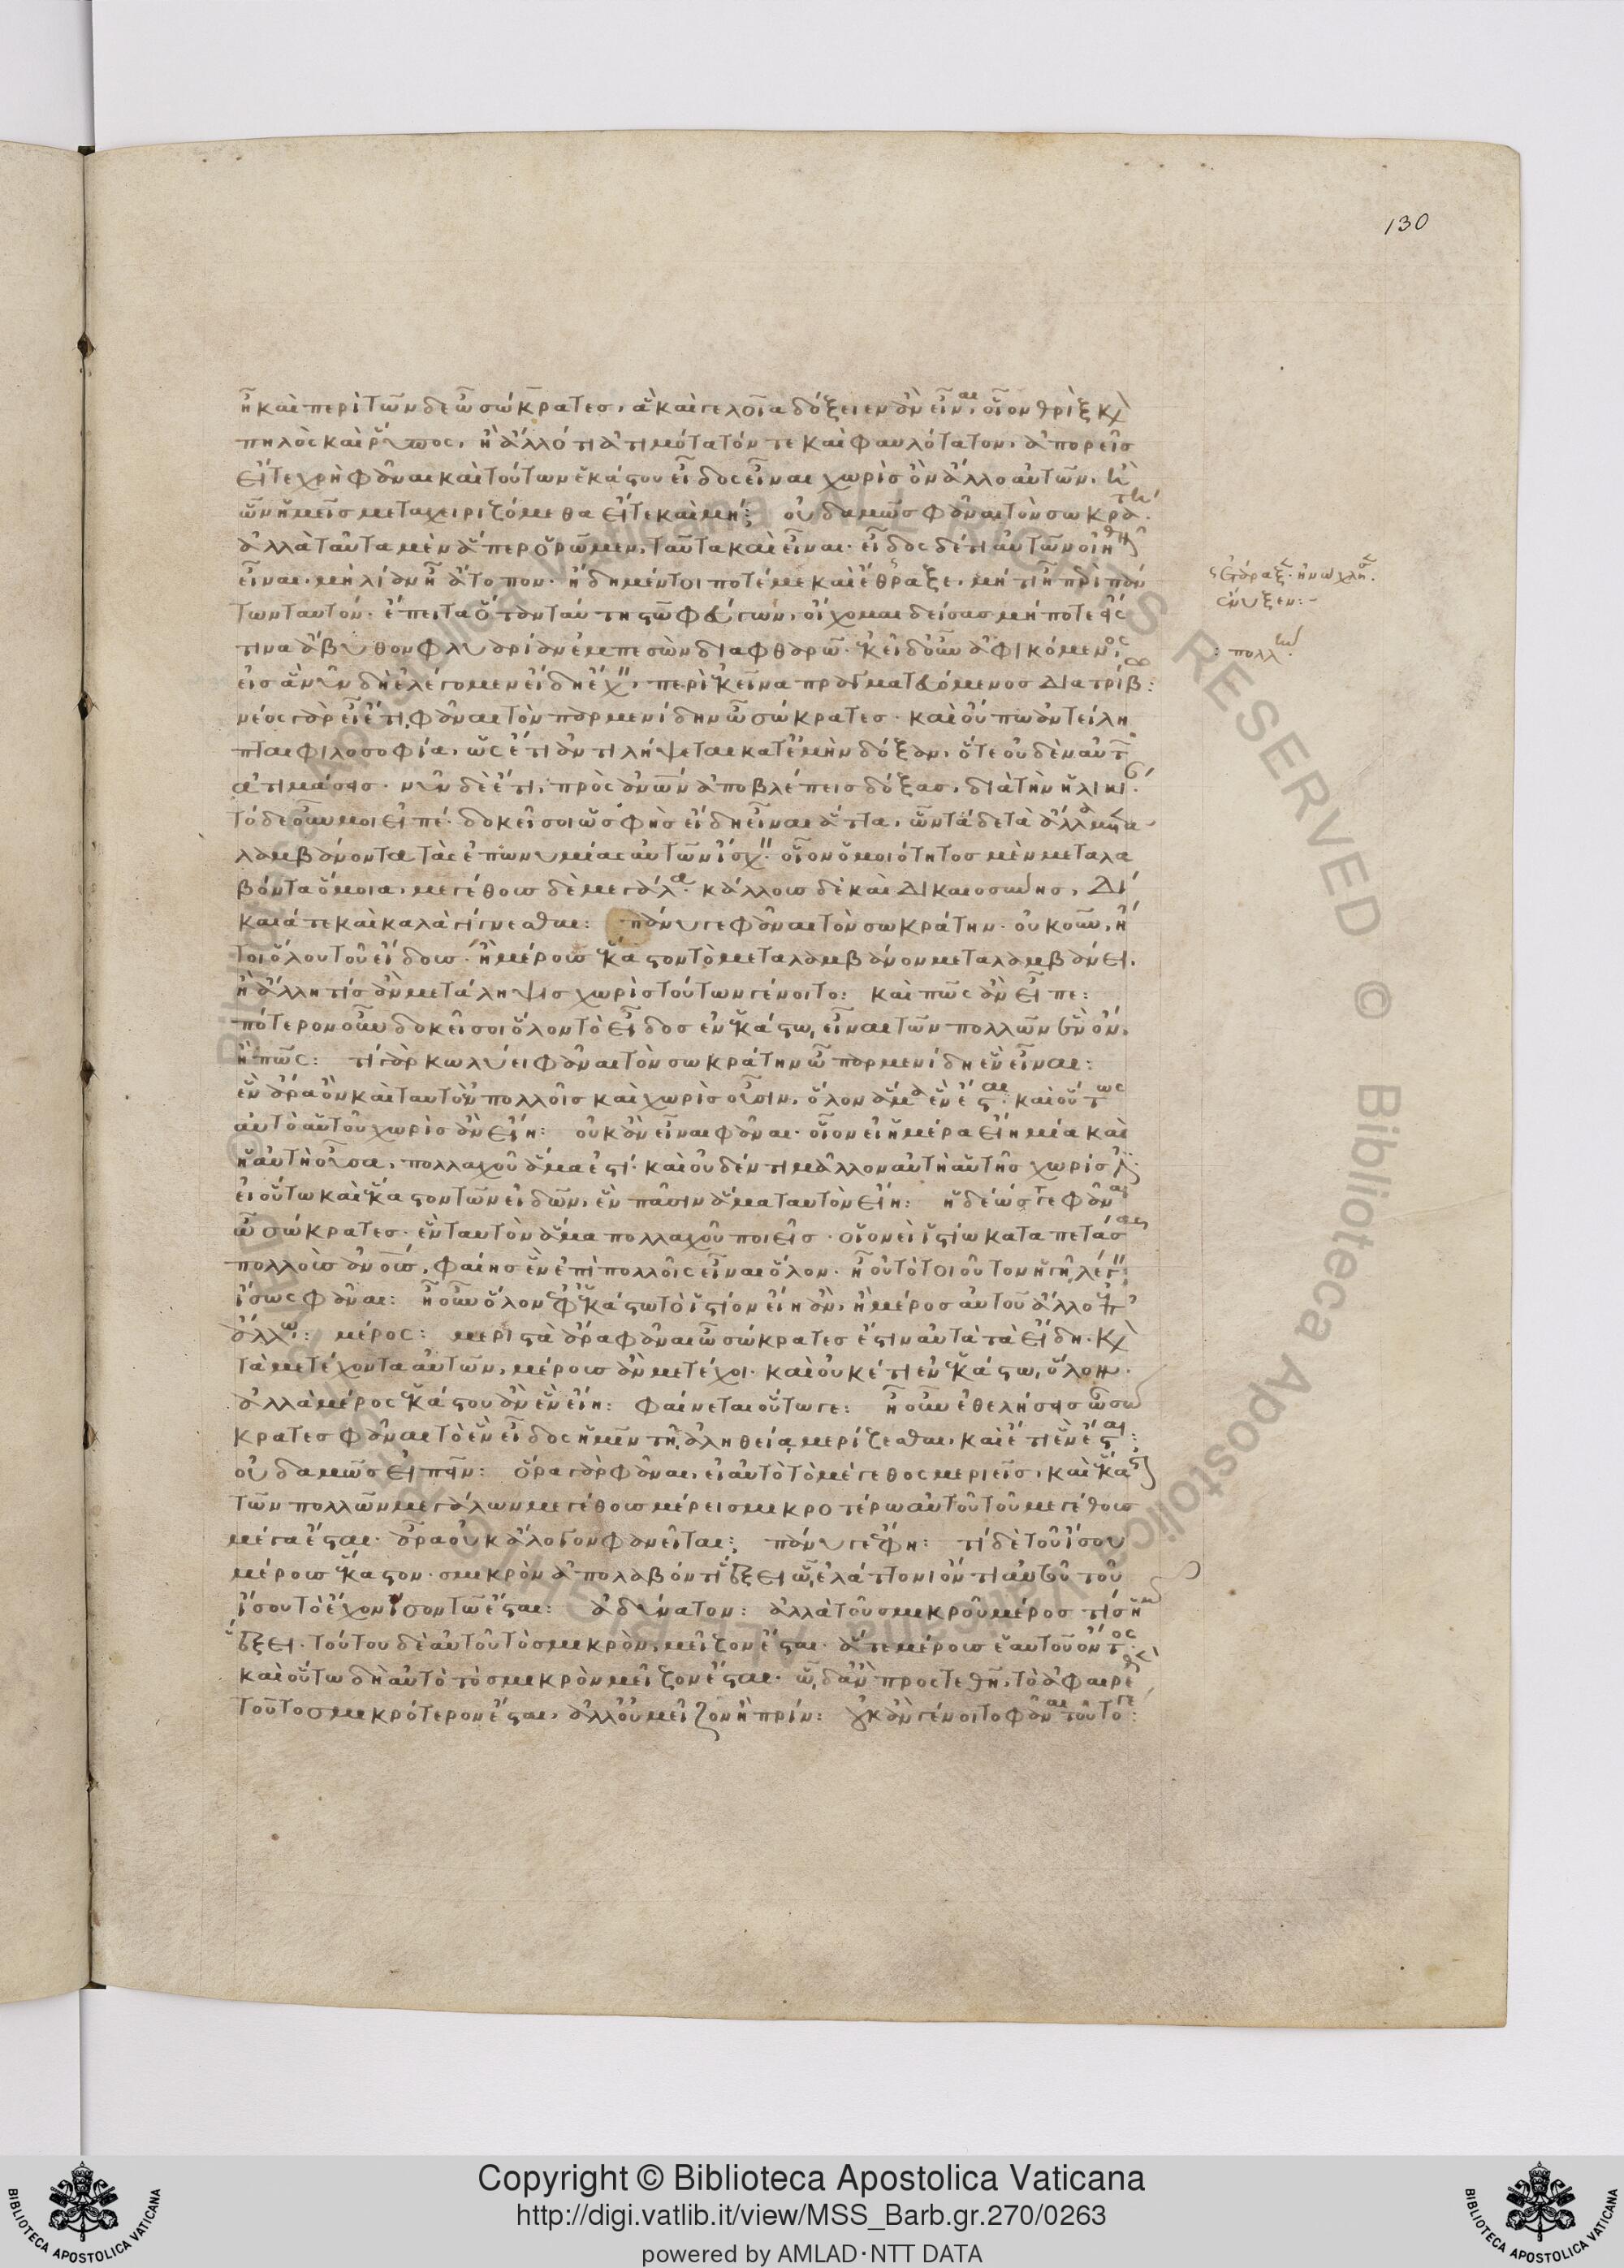 130
ἦ καὶ περὶ τῶνδε ὦ σώκρατεσ, ἃ καὶ γελοῖα δόξειεν ἂν εἶναι, οἷον θρὶξ κ(αὶ)
πηλὸς καὶ ῥύπος, ἢ ἄλλό τι ἀτιμότατόν τε καὶ φαυλότατον, ἀπορεῖσ
εἴτε χρὴ φάναι καὶ τούτων ἑκάστου εἶδος εἶναι χωρὶσ ὂν ἄλλο αὐτῶν, ἢ
ὧν ἡμεῖσ μεταχειριζόμεθα εἴτε καὶ μή; οὐδαμῶσ φάναι τὸν σωκράτη
ἀλλὰ ταῦτα μὲν ἅπερ ὁρῶμεν, ταῦτα καὶ εἶναι· εἶδος δέ τι αὐτῶν οἰηθῆ
εἶναι, μὴ λίαν ἦ ἄτοπον· ἤδη μέντοι ποτέ με καὶ ἔθραξε, μή τι ἦ περὶ πάν
των ταυτόν· ἔπειτα ὅταν ταύτη στῶ φεύγων, οἴχομαι δείσασ μή ποτε εἴς
τινα ἄβυθον φλυαρίαν ἐμπεσὼν διαφθαρῶ· ἐκεῖ δ' οὖν ἀφικόμενος
εἰσ ἃ νῦν δὴ ἐλέγομεν εἴδη ἔχ, περὶ ἐκεῖνα πραγματευόμενοσ διατρίβω:
νέος γὰρ εἶ ἔτι, φάναι τὸν παρμενίδην ὦ σώκρατεσ· καὶ οὔπω ἀντείλη
πται φιλοσοφία, ὡς ἔτι ἀντιλήψεται κατ' ἐμὴν δόξαν, ὅτε οὐδὲν αὐτ
ἀτιμάσεισ· νῦν δὲ ἔτι, πρὸς ἀνων ἀποβλέπεισ δόξασ, διὰ τὴν ἡλικι
τόδε οὖν μοι εἰπέ· δοκεῖ σοι ὡσ φὴσ εἴδη εἶναι ἄττα, ὧν τάδε τὰ ἄλλα μετα
λαμβάνοντα τὰς ἐπωνυμίας αὐτῶν ἴσχ· οἷον ὁμοιότητοσ μὲν μεταλα
βόντα ὅμοια, μεγέθουσ δὲ μεγάλα· κάλλουσ δὲ καὶ δικαιοσύνησ, δί
καιά τε καὶ καλὰ γίγνεσθαι: πάνυ γε φάναι τὸν σωκράτην· οὐκοῦν, ἤ
τοι ὅλου τοῦ εἴδουσ· ἢ μέρουσ ἕκαστον τὸ μεταλαμβάνον μεταλαμβάνει,
ἢ ἄλλη τίσ ἂν μετάληψισ χωρὶσ τούτων γένοιτο: καὶ πῶς ἂν εἶπε:
πότερον οὖν δοκεῖ σοι ὅλον τὸ εἶδοσ ἐν ἑκάστω, εἶναι τῶν πολλῶν ἓν ὄν,
ἢ πῶς: τί γὰρ κωλύει φάναι τὸν σωκράτην ὦ παρμενίδη ἓν εἶναι:
ἓν ἄρα ὂν καὶ ταυτὸν πολλοῖσ καὶ χωρὶσ οὖσιν, ὅλον ἅμα ἐνέσται· καὶ οὕτως
αὐτὸ αὑτοῦ χωρὶσ ἂν εἴη: οὐκ ἂν εἶναι φάναι· οἷον εἰ ἡμέρα εἴη μία καὶ
ἡ αὐτὴ οὖσα, πολλαχοῦ ἅμα ἐστί· καὶ οὐδέν τι μᾶλλον αὐτὴ αὑτῆσ χωρίσ ἐστιν·
εἰ οὕτω καὶ ἕκαστον τῶν εἰδῶν, ἓν πᾶσιν ἅμα ταυτὸν εἴη: ἡδέωσ γε φάναι
ὦ σώκρατεσ· ἓν ταυτὸν ἅμα πολλαχοῦ ποιεῖσ· οἷον εἰ ἱστίω καταπετάσας
πολλοὺσ ἀνουσ, φαίησ ἓν ἐπὶ πολλοῖς εἶναι ὅλον· ἢ οὐ τὸ τοιοῦτον ἡγῆ λέγ;
ἴσως φάναι: ἦ οὖν ὅλον ἐφ' ἑκάστω τὸ ἱστίον εἴη ἂν, ἢ μέροσ αὐτοῦ ἄλλο ἐπ'
ἄλλω: μέροσ: μεριστὰ ἄρα φάναι ὦ σώκρατεσ ἔστιν αὐτὰ τὰ εἴδη· κ(αὶ)
τὰ μετέχοντα αὐτῶν, μέρουσ ἂν μετέχοι· καὶ οὐκέτι ἐν ἑκάστω, ὅλον·
ἀλλὰ μέρος ἑκάστου ἂν ἓν εἴη: φαίνεται οὕτω γε: ἦ οὖν ἐθελήσεισ ὦ σώ
κρατεσ φάναι τὸ ἓν εἶδος ἡμῖν τῆ ἀληθεία μερίζεσθαι, καὶ ἔτι ἓν ἔσται;
οὐδαμῶσ εἰπεῖν: ὅρα γὰρ φάναι, εἰ αὐτὸ τὸ μέγεθος μεριεῖσ, καὶ ἕκαστ
τῶν πολλῶν μεγάλων μεγέθουσ μέρει σμικροτέρω αὐτοῦ τοῦ μεγέθουσ
μέγα ἔσται· ἆρα οὐκ ἄλογον φανεῖται; πάνυ γε ἔφη: τί δὲ τοῦ ἴσου
μέρουσ ἕκαστον· σμικρὸν ἀπολαβόν τι ἕξει ὧ, ἐλάττονι ὄντι αὐτοῦ τοῦ
ἴσου τὸ ἔχον ἴσον τω ἔσται: ἀδύνατον: ἀλλὰ τοῦ σμικροῦ μέροσ τίσ ἡμῶν
ἕξει· τούτου δὲ αὐτοῦ τὸ σμικρὸν, μεῖζον ἔσται· ἅτε μέρουσ ἑαυτοῦ ὄντος·
καὶ οὕτω δὴ αὐτὸ τὸ σμικρὸν μεῖζον ἔσται· ὧ, δ' ἂν προστεθῆ, τὸ ἀφαιρεθὲν
τοῦτο σμικρότερον ἔσται, ἀλλ' οὐ μεῖζον ἢ πρίν: οὐκ ἂν γένοιτο φάναι τοῦτό γε:
ἔθραξε· ἠνώχλησεν·
ἔνυξεν:-
: πολλὴν
Copyright © Biblioteca Apostolica Vaticana
http://digi.vatlib.it/view/MSS_Barb.gr.270/0263
powered by AMLAD·NTT DATA
BIBLIOTECA APOSTOLICA VATICANA
BIBLIOTECA APOSTOLICA VATICANA